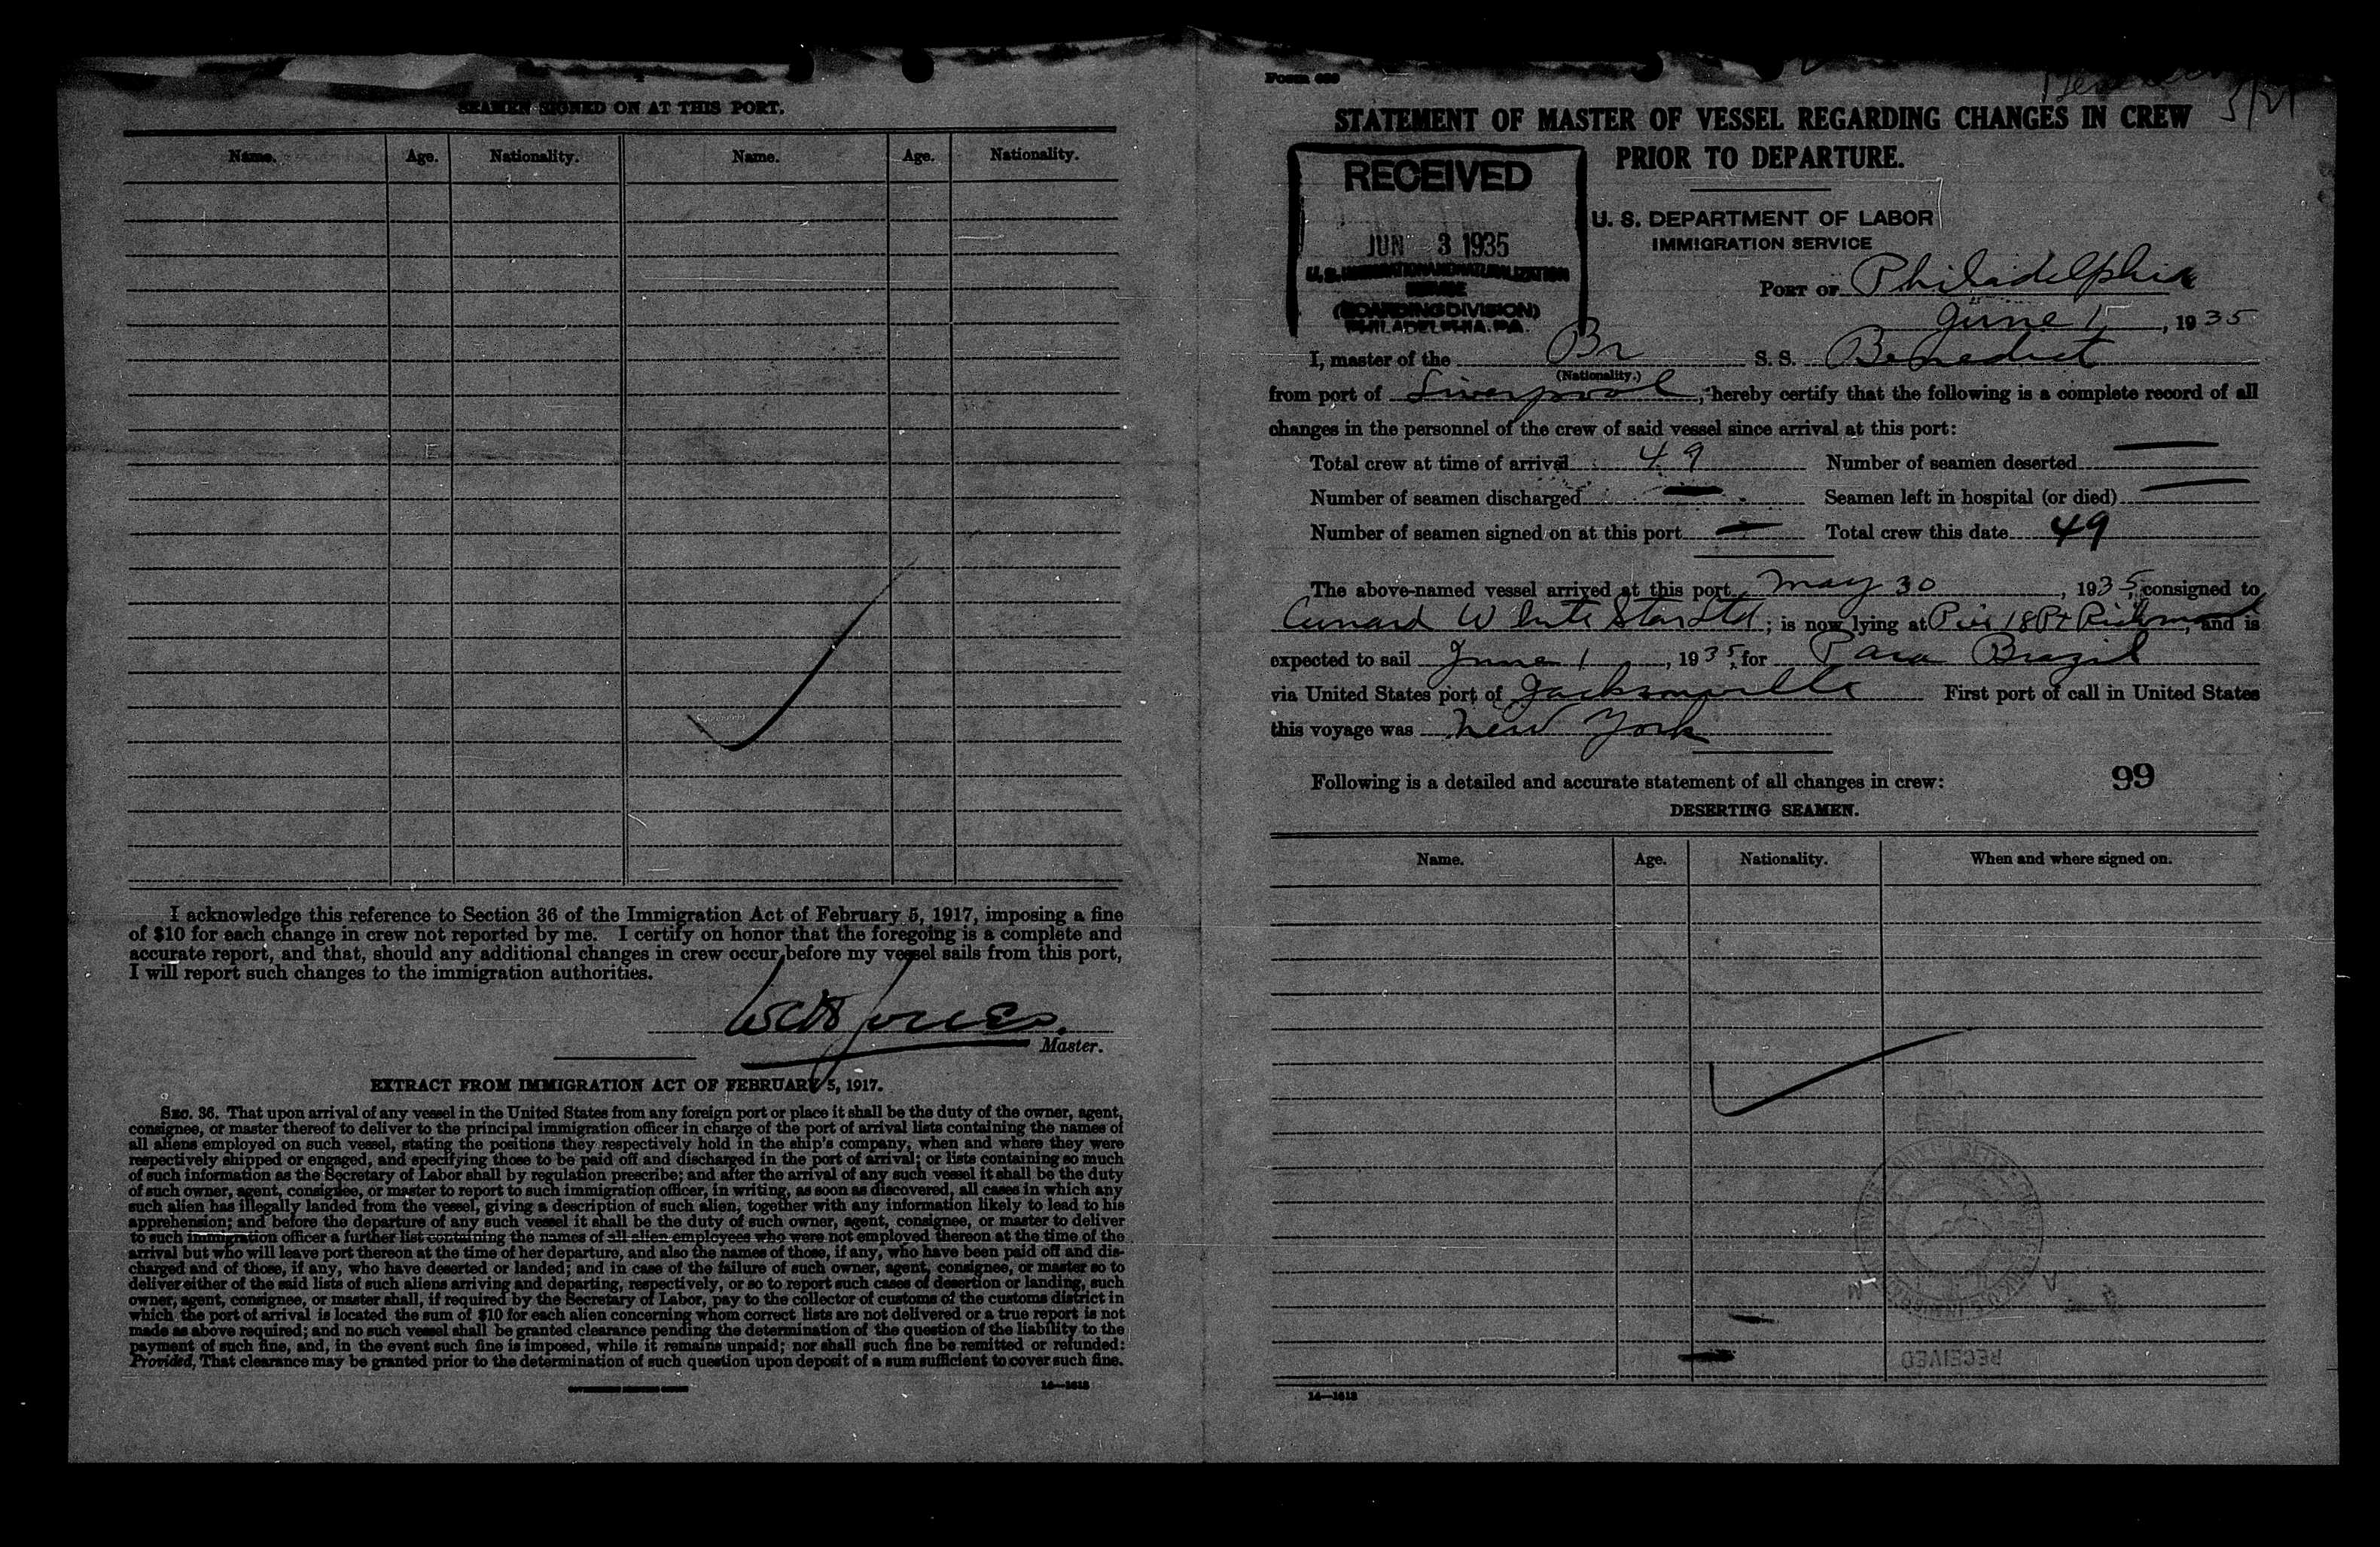 SEAMEN SIGNED ON AT THIS PORT.
Name. Age. Nationality. Name. Age. Nationality.
I acknowledge this reference to Section 36 of the Immigration Act of February 5, 1917, imposing a fine
of $10 for each change in crew not reported by me. I certify on honor that the foregoing is a complete and
accurate report, and that, should any additional changes in crew occur before my vessel sails from this port,
I will report such changes to the immigration authorities.
Jones.
Master.
EXTRACT FROM IMMIGRATION ACT OF FEBRUARY 5, 1917.
SEC. 36. That upon arrival of any vessel in the United States from any foreign port or place it shall be the duty of the owner, agent,
consignee, or master thereof to deliver to the principal immigration officer in charge of the port of arrival lists containing the names of
all aliens employed on such vessel, stating the positions they respectively hold in the ship's company, when and where they were
respectively shipped or engaged, and specifying those to be paid off and discharged in the port of arrival; or lists containing so much
of such information as the Secretary of Labor shall by regulation prescribe; and after the arrival of any such vessel it shall be the duty
of such owner, agent, consignee, or master to report to such immigration officer, in writing, as soon as discovered, all cases in which any
such alien has illegally landed from the vessel, giving a description of such alien, together with any information likely to lead to his
apprehension; and before the departure of any such vessel it shall be the duty of such owner, agent, consignee, or master to deliver
to such immigration officer a further list containing the names of all alien employees who were not employed thereon at the time of the
arrival but who will leave port thereon at the time of her departure, and also the names of those, if any, who have been paid off and dis-
charged and of those, if any, who have deserted or landed; and in case of the failure of such owner, agent, consignee, or master so to
deliver either of the said lists of such aliens arriving and departing, respectively, or so to report such cases of desertion or landing, such
owner, agent, consignee, or master shall, if required by the Secretary of Labor, pay to the collector of customs of the customs district in
which the port of arrival is located the sum of $10 for each alien concerning whom correct lists are not delivered or a true report is not
made as above required; and no such vessel shall be granted clearance pending the determination of the question of the liability to the
payment of such fine, and, in the event such fine is imposed, while it remains unpaid; nor shall such fine be remitted or refunded:
Provided, That clearance may be granted prior to the determination of such question upon deposit of a sum sufficient to cover such fine.
14—1613
Form 689
5/21
STATEMENT OF MASTER OF VESSEL REGARDING CHANGES IN CREW
PRIOR TO DEPARTURE.
RECEIVED
JUN 3 1935
U. S. IMMIGRATION AND NATURALIZATION
SERVICE
(BOARDING DIVISION)
PHILADELPHIA, PA.
U. S. DEPARTMENT OF LABOR
IMMIGRATION SERVICE
PORT OF Philadelphia
June 1, 1935
I, master of the Br S. S. Benedict
(Nationality.)
from port of Liverpool, hereby certify that the following is a complete record of all
changes in the personnel of the crew of said vessel since arrival at this port:
Total crew at time of arrival 49 Number of seamen deserted —
Number of seamen discharged — Seamen left in hospital (or died) —
Number of seamen signed on at this port — Total crew this date 49
The above-named vessel arrived at this port May 30, 1935, consigned to
Cunard White Star Ltd; is now lying at Pier 18 Pt Richmond, and is
expected to sail June 1, 1935, for Para Brazil
via United States port of Jacksonville First port of call in United States
this voyage was New York
Following is a detailed and accurate statement of all changes in crew:
99
DESERTING SEAMEN.
Name. Age. Nationality. When and where signed on.
RECEIVED
14—1613